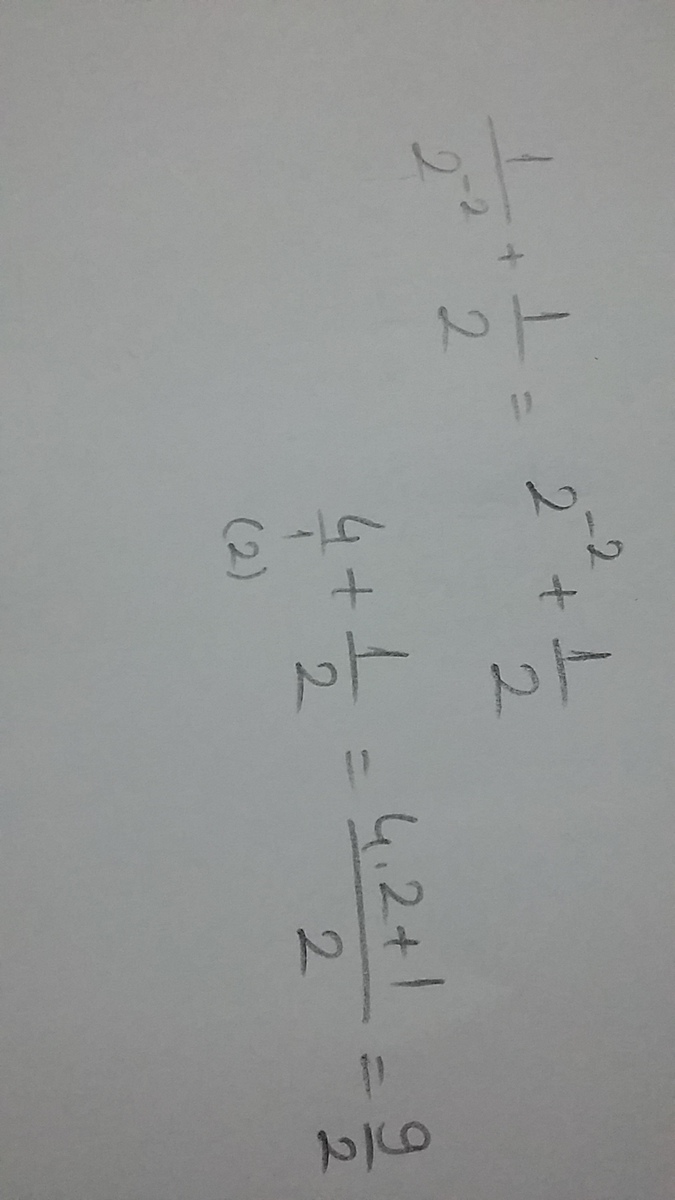 1/2⁻² + 1/2 = 2⁻² + 1/2
4/1 + 1/2 = 4.2+1/2 = 9/2
(2)